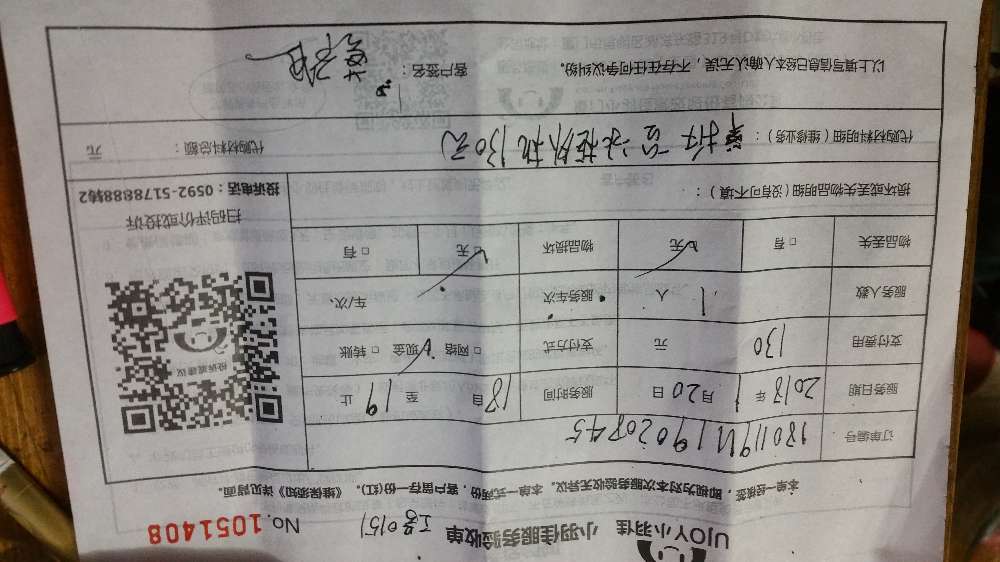 UJOY小羽佳 小羽佳服务验收单 工号0151 No.1051408
本单一经核签，即视为对本次服务验收无异议。本单一式两份，客户留存一份(红)。《维保须知》详见背面。
订单编号
服务日期 2018年 1月20日 服务时间 自18至19止
支付费用 130元 支付方式 □网络 □现金 □转账
服务人数 1人 服务车次 车/次
物品丢失 □有 □无 物品损坏 □无 □有
损坏或丢失物品明细(没有可不填)：
投诉或建议
扫码评价或投诉
投诉电话：0592-5178888转2
代购材料明细(维修业务)： 130元 代购材料总额： 元
以上填写信息已经本人确认无误，不存在任何争议纠纷。 客户签名：